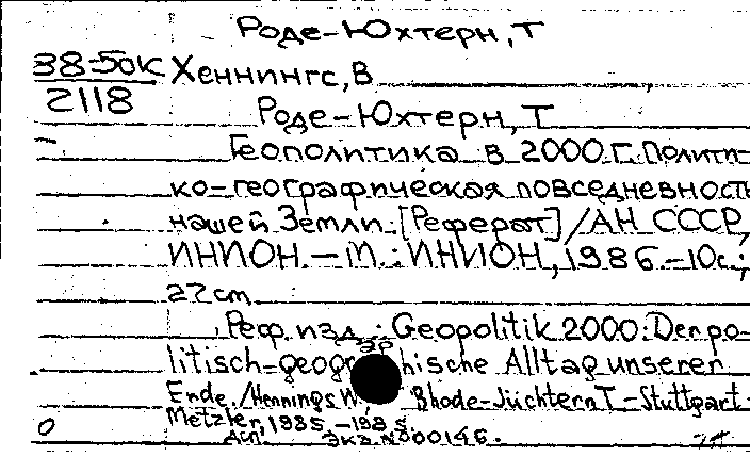 Роде-Юхтерн, Т
38-50К Хеннингс, В
2118
Роде-Юхтерн, Т
Геополитика в 2000 г. Полити-
ко-географическая повседневность
нашей Земли: [Реферат] / АН СССР,
ИНИОН. – М.: ИНИОН, 1986. – 10с.;
22 cm.
Реф. изд.: Geopolitik 2000: Der po-
litisch-geographische Alltag unserer
Erde. / Hennings W., Rhode-Jüchtern T. – Stuttgart:
Metzler, 1985. –198 S.
Экз. N 000146.